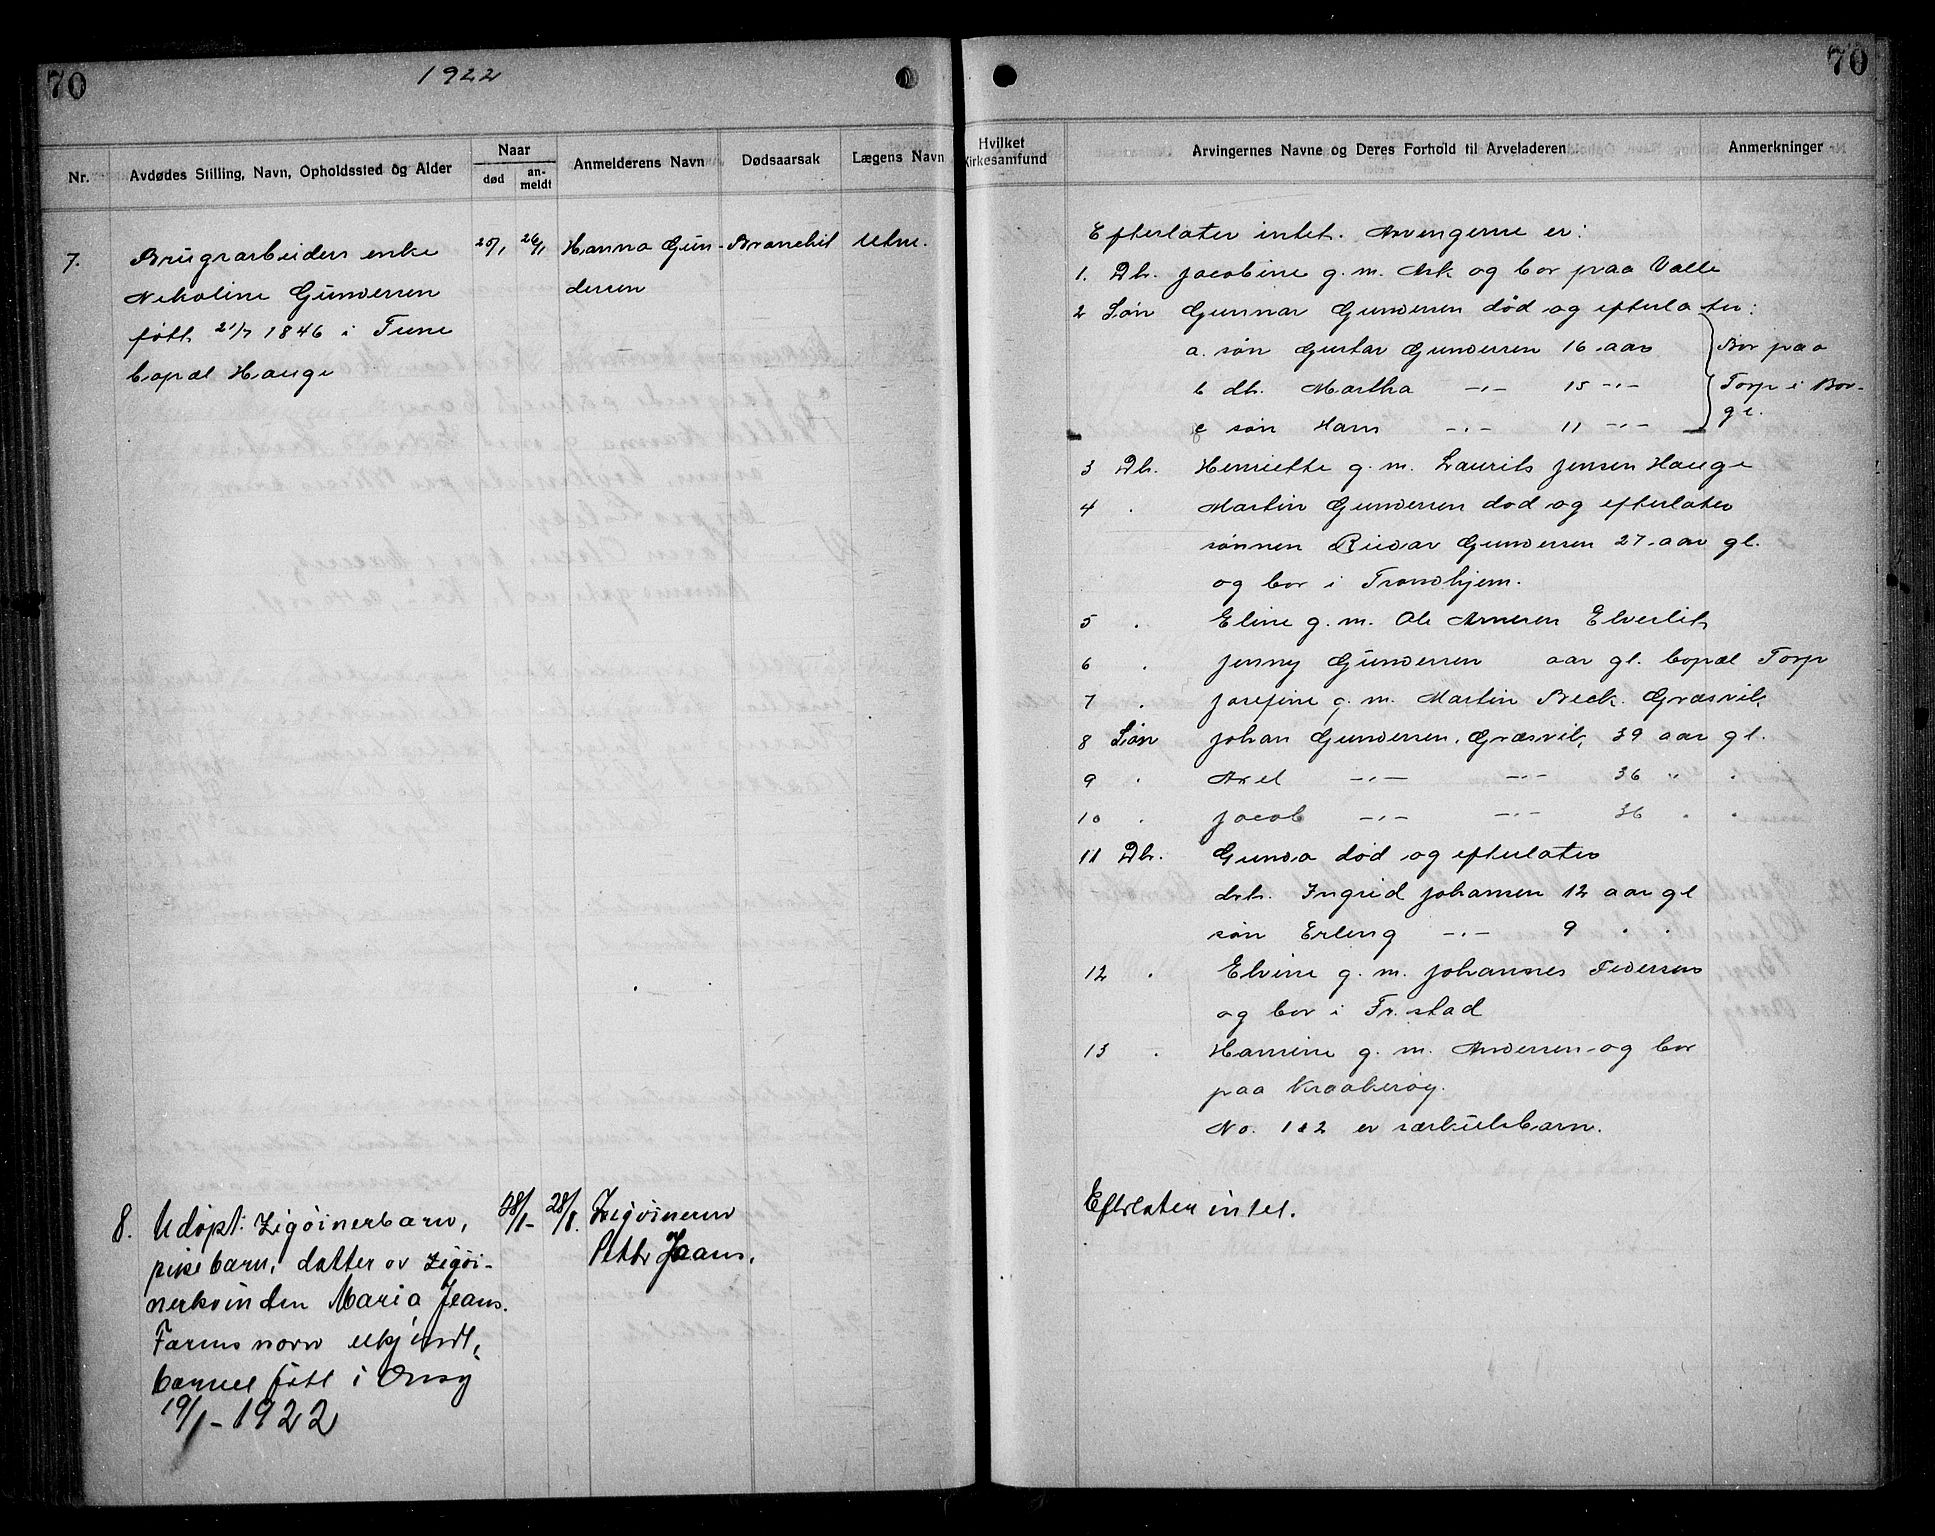 70
1922
70
Nr.
Avdødes Stilling, Navn, Opholdssted og Alder
Naar
død
an-
meldt
Anmelderens Navn
Dødsaarsak
Lægens Navn
Hvilket
Kirkesamfund
Arvingernes Navne og Deres Forhold til Arveladeren
Anmerkninger
7.
Brugsarbeiders enke
Nikoline Gundersen
født 21/7 1846 i Tune
bopæl Hauge
25/1
26/1
Hanna Gun-
dersen
Bronchit
Utne.
Efterlater intet. Arvingerne er:
1. Dtr. Jacobine g. m. Ask og bor paa Valle
2 Søn Gunnar Gundersen død og efterlater:
a. søn Gustav Gundersen 16 aar
b dtr. Martha -"- 15 -"-
c søn Hans -"- 11 -"-
Bor paa
Torp i Bor-
ge.
3 Dtr. Henriette g. m. Laurits Jensen Hauge
4 . Martin Gundersen død og efterlater
sønnen Reidar Gundersen 27 aar gl.
og bor i Trondhjem.
5 . Eline g. m. Ole Arnesen Elverlit
6 . Jenny Gundersen aar gl. bopæl Torp
7 . Josefine g. m. Martin Beck. Græsvik
8 Søn Johan Gundersen, Græsvik, 39 aar gl.
9 . Axel -"- -"- 36 " "
10 . Jacob -"- -"- 36 . .
11 Dtr. Gunda død og efterlater
dtr. Ingrid Johansen 12 aar gl
søn Erling -"- 9 . .
12 . Elvine g. m. Johannes Pedersen
og bor i Fr.stad
13 . Hansine g. m. Andersen og bor
paa Kraakerøy.
No. 1 & 2 er særkulsbarn.
8. Udøpt Zigøinerbarn,
pikebarn, datter av Zigøi-
nerkvinden Maria Jeans.
Farens navn ukjendt,
barnet født i Onsø
19/1-1922
28/1-
28/1.
Zigøineren
Petter Jeans.
Efterlater intet.